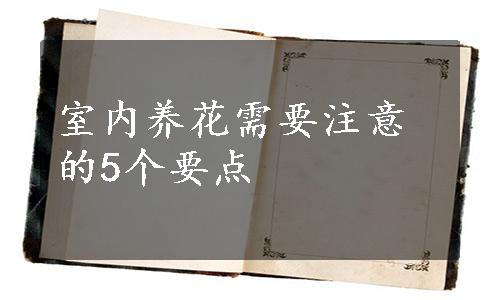 室内养花需要注意
的5个要点